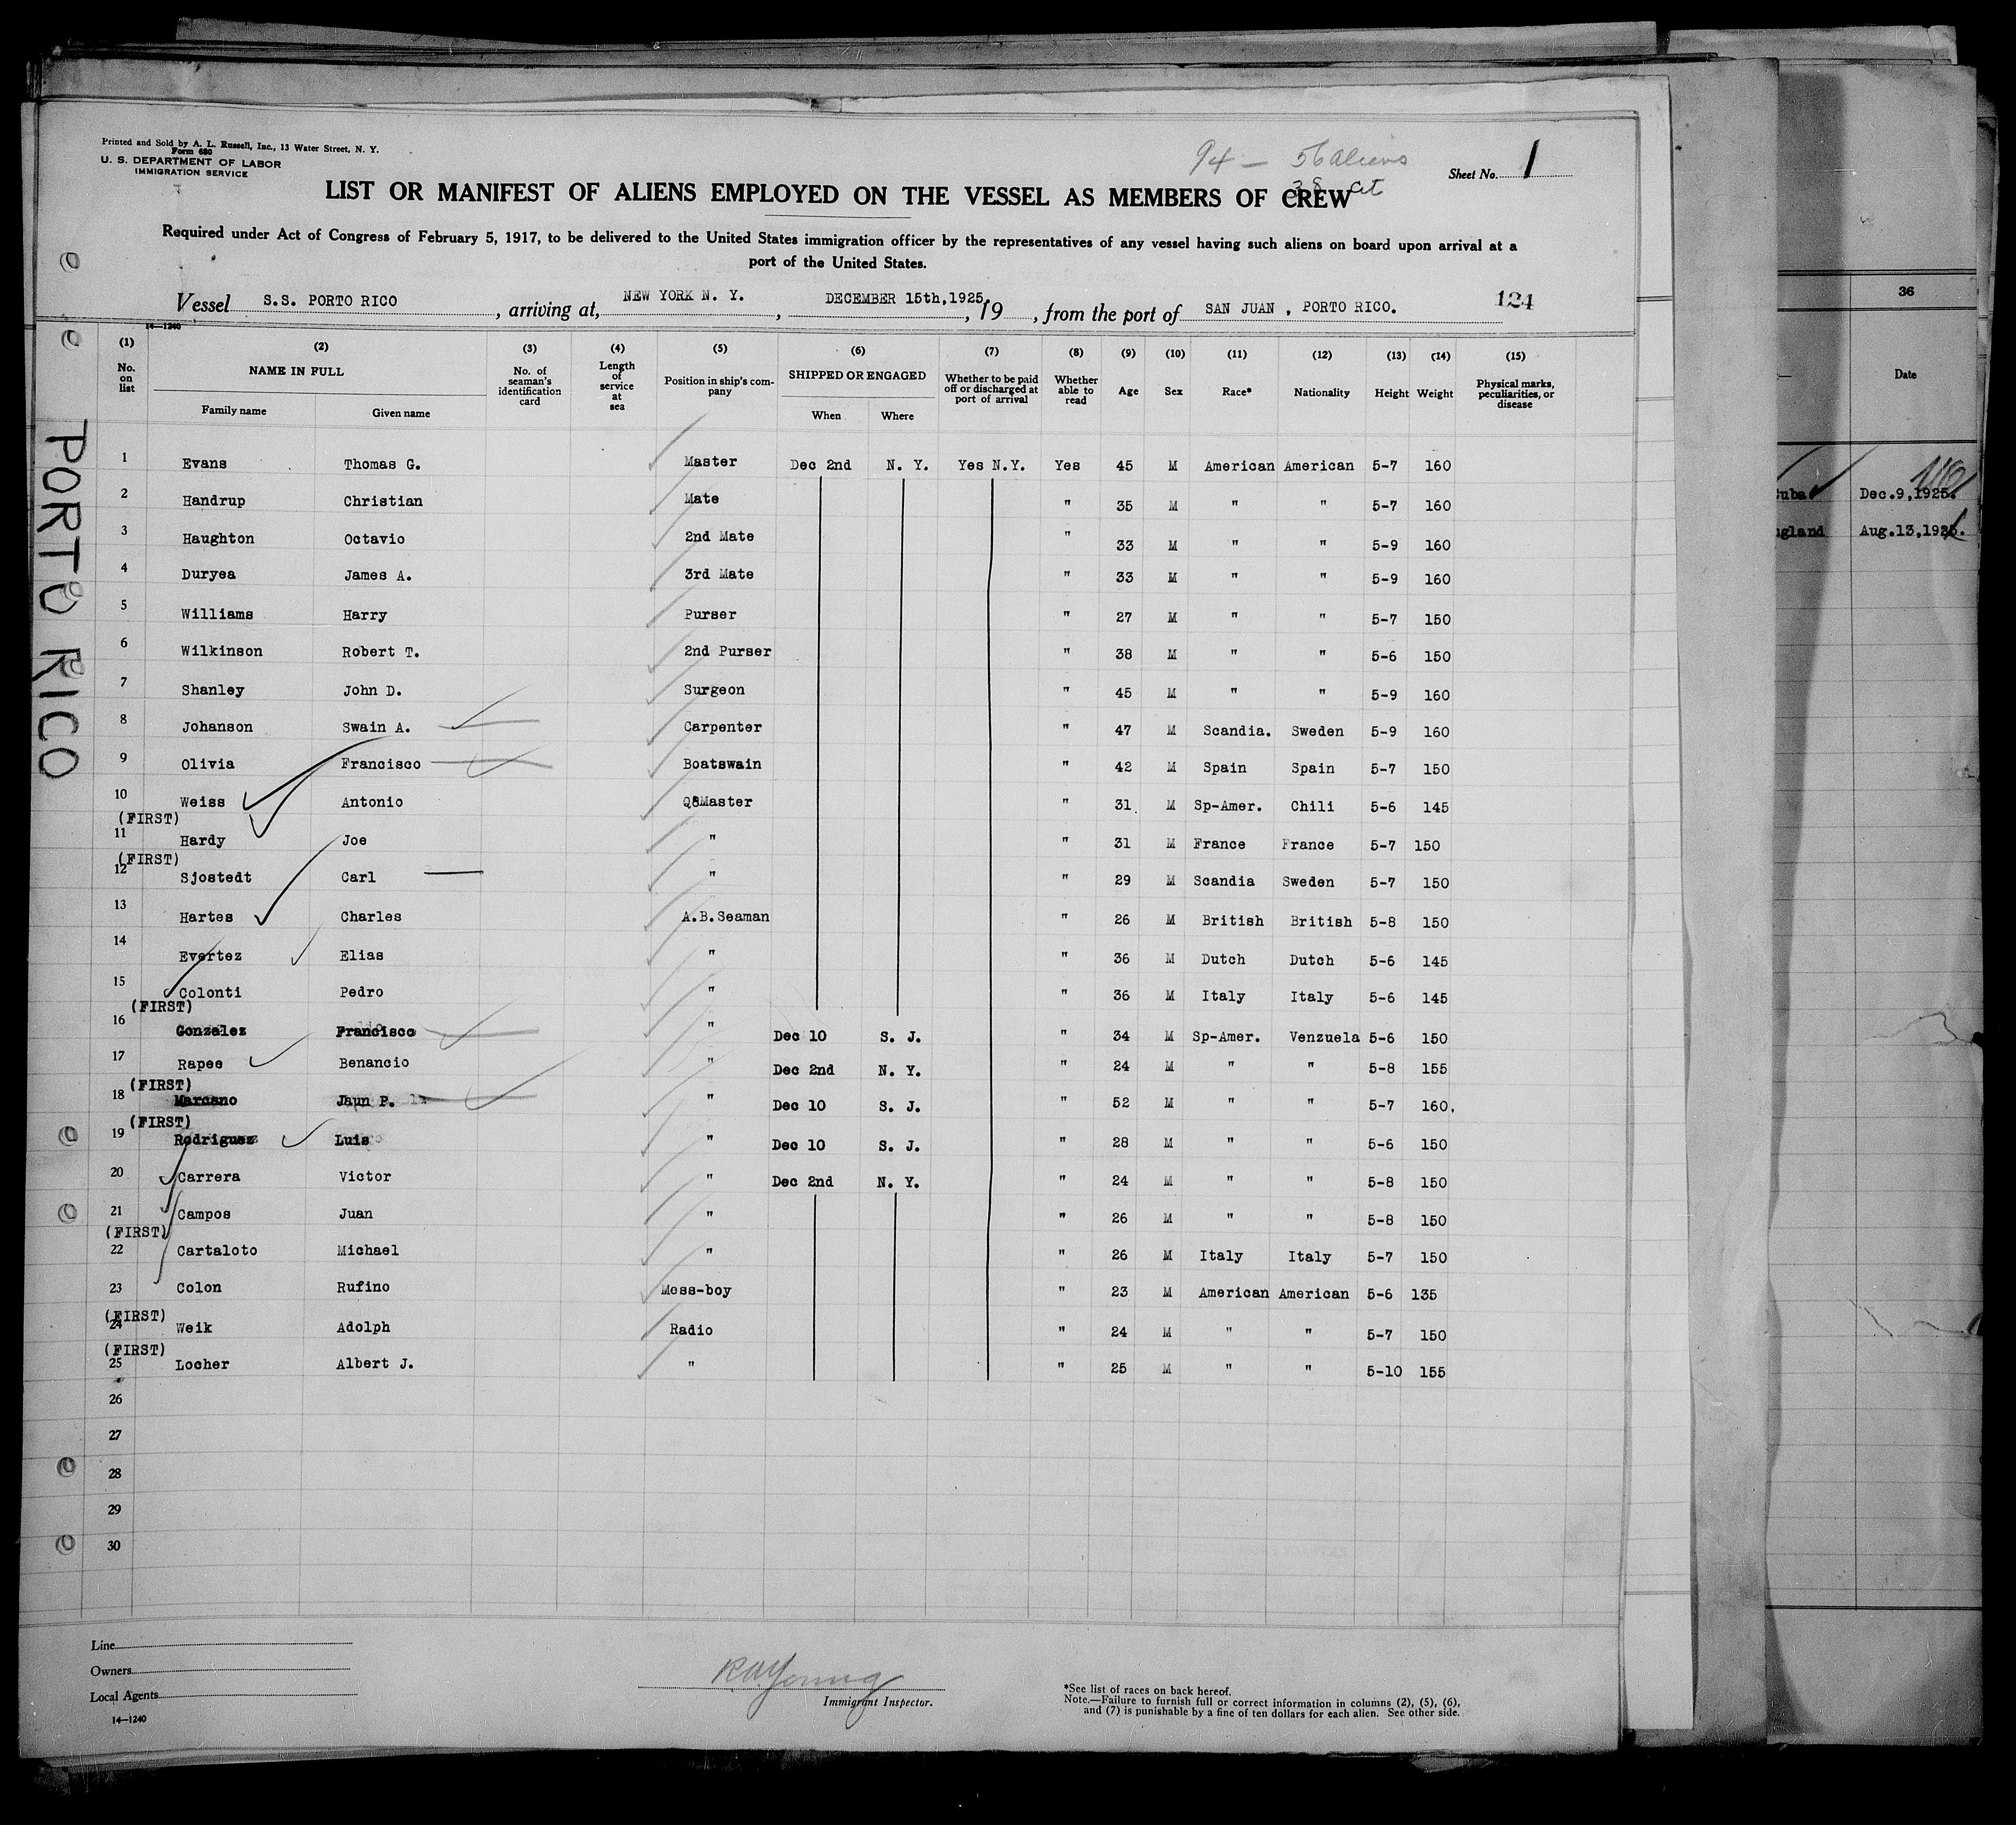 Printed and Sold by A. L. Russell, Inc., 13 Water Street, N. Y.
Form 680
U. S. DEPARTMENT OF LABOR
IMMIGRATION SERVICE
94 — 56 aliens
38 cit
Sheet No. 1
LIST OR MANIFEST OF ALIENS EMPLOYED ON THE VESSEL AS MEMBERS OF CREW
Required under Act of Congress of February 5, 1917, to be delivered to the United States immigration officer by the representatives of any vessel having such aliens on board upon arrival at a
port of the United States.
Vessel S.S. PORTO RICO, arriving at, NEW YORK N. Y., DECEMBER 15th,1925, 19, from the port of SAN JUAN , PORTO RICO. 124
14—1240
PORTO RICO
(1) No. on list (2) NAME IN FULL Family name Given name (3) No. of seaman's identification card (4) Length of service at sea (5) Position in ship's company (6) SHIPPED OR ENGAGED When Where (7) Whether to be paid off or discharged at port of arrival (8) Whether able to read (9) Age (10) Sex (11) Race* (12) Nationality (13) Height (14) Weight (15) Physical marks, peculiarities, or disease
1 Evans Thomas G. Master Dec 2nd N. Y. Yes N.Y. Yes 45 M American American 5-7 160
2 Handrup Christian Mate " 35 M " " 5-7 160
3 Haughton Octavio 2nd Mate " 33 M " " 5-9 160
4 Duryea James A. 3rd Mate " 33 M " " 5-9 160
5 Williams Harry Purser " 27 M " " 5-7 150
6 Wilkinson Robert T. 2nd Purser " 38 M " " 5-6 150
7 Shanley John D. Surgeon " 45 M " " 5-9 160
8 Johanson Swain A. Carpenter " 47 M Scandia. Sweden 5-9 160
9 Olivia Francisco Boatswain " 42 M Spain Spain 5-7 150
10 Weiss Antonio Q8Master " 31 M Sp-Amer. Chili 5-6 145
(FIRST)
11 Hardy Joe " " 31 M France France 5-7 150
(FIRST)
12 Sjostedt Carl " " 29 M Scandia Sweden 5-7 150
13 Hartes Charles A.B.Seaman " 26 M British British 5-8 150
14 Evertez Elias " " 36 M Dutch Dutch 5-6 145
15 Colonti Pedro " " 36 M Italy Italy 5-6 145
(FIRST)
16 Gonzalez Francisco " Dec 10 S. J. " 34 M Sp-Amer. Venzuela 5-6 150
17 Rapee Benancio " Dec 2nd N. Y. " 24 M " " 5-8 155
(FIRST)
18 Marcano Jaun P. " Dec 10 S. J. " 52 M " " 5-7 160,
(FIRST)
19 Rodriguez Luis " Dec 10 S. J. " 28 M " " 5-6 150
20 Carrera Victor " Dec 2nd N. Y. " 24 M " " 5-8 150
21 Campos Juan " " 26 M " " 5-8 150
(FIRST)
22 Cartaloto Michael " " 26 M Italy Italy 5-7 150
23 Colon Rufino Mess-boy " 23 M American American 5-6 135
(FIRST)
24 Weik Adolph Radio " 24 M " " 5-7 150
(FIRST)
25 Locher Albert J. " " 25 M " " 5-10 155
26
27
28
29
30
Line
Owners
Local Agents
14—1240
Immigrant Inspector.
*See list of races on back hereof.
Note.—Failure to furnish full or correct information in columns (2), (5), (6),
and (7) is punishable by a fine of ten dollars for each alien. See other side.
36
Date
Dec.9,1925.
Aug.13,1925.